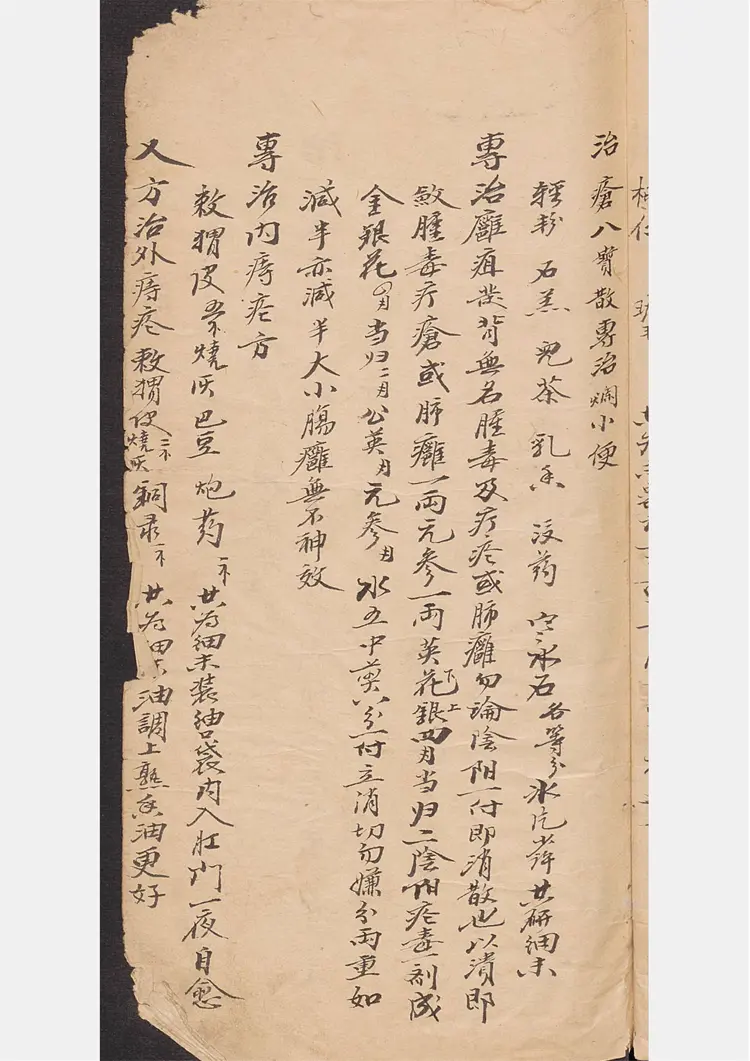 治瘡八寶散專治爛小便
輕粉 石羔 兒茶 乳香 沒药 寒水石各等分 冰片少許 共研細末
專治癰疽發背無名腫毒及疔疮或肺癰勿論陰阳一付即消散也以潰即
斂腫毒疔瘡或肺癰一兩元參一兩英花銀四 当归二陰阳疮毒一剂成
金銀花 当归二 公英 元參 水五中煎八分一付立消切勿嫌分兩重如
減半亦減半大小腸癰無不神效
專治内痔疮方
刺猬皮 燒灰巴豆炮药 共为細末装油口袋内入肛门一夜自愈
又方治外痔疮刺猬皮燒灰 銅录 共为細末油調上熟香油更好